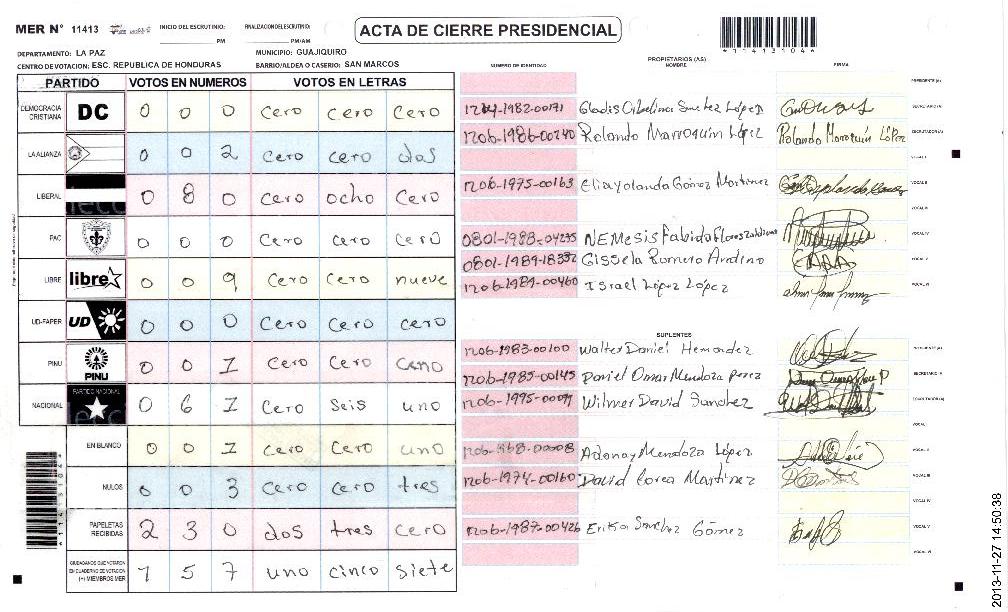 MER N° 11413 INICIO DEL ESCRUTINIO: PM FINALIZACION ESCRUTINIO: PM/AM
ACTA DE CIERRE PRESIDENCIAL
*114131044*
DEPARTAMENTO: LA PAZ MUNICIPIO: GUAJIQUIRO
CENTRO DE VOTACION: ESC. REPUBLICA DE HONDURAS BARRIO/ALDEA O CASERIO: SAN MARCOS
PARTIDO VOTOS EN NUMEROS VOTOS EN LETRAS
DEMOCRACIA CRISTIANA DC 0 0 0 Cero Cero Cero
LA ALIANZA 0 0 2 Cero cero dos
LIBERAL 0 8 0 Cero ocho Cero
PAC 0 0 0 Cero Cero Cero
LIBRE libre 0 0 9 Cero Cero nueve
UD-FAPER UD 0 0 0 Cero Cero cero
PINU PINU 0 0 1 Cero Cero uno
NACIONAL PARTIDO NACIONAL 0 6 1 Cero Seis uno
EN BLANCO 0 0 1 Cero Cero uno
NULOS 0 0 3 Cero Cero tres
PAPELETAS RECIBIDAS 2 3 0 dos tres Cero
CIUDADANOS QUE VOTARON EN CUADERNO DE VOTACION (+) MIEMBROS MER 1 5 7 uno cinco Siete
PROPIETARIOS (AS)
NUMERO DE IDENTIDAD NOMBRE FIRMA
PRESIDENTE (A)
1204-1982-00171 Gladis Sanchez López SECRETARIO (A)
1206-1986-00240 Rolando Marroquín López Rolando Marroquín López ESCRUTADOR (A)
VOCAL I
1206-1975-00163 Eliayolanda Gómez Martinez VOCAL II
VOCAL III
0801-1988-04295 NEMESIS Fabiola Flores VOCAL IV
0801-1989-18332 Gissela Romero Andino VOCAL V
1206-1989-00460 Israel López López VOCAL VI
SUPLENTES
1206-1983-00100 Walter Daniel Hernandez PRESIDENTE (A)
1206-1985-00145 Daniel Omar Mendoza perez SECRETARIO (A)
1206-1995-00091 Wilmer David Sanchez ESCRUTADOR (A)
VOCAL I
1206-1968-00008 Adonay Mendoza López VOCAL II
1206-1974-00160 David Corea Martinez VOCAL III
VOCAL IV
1206-1987-00426 Erika Sanchez Gómez VOCAL V
VOCAL VI
2013-11-27 14:50:38